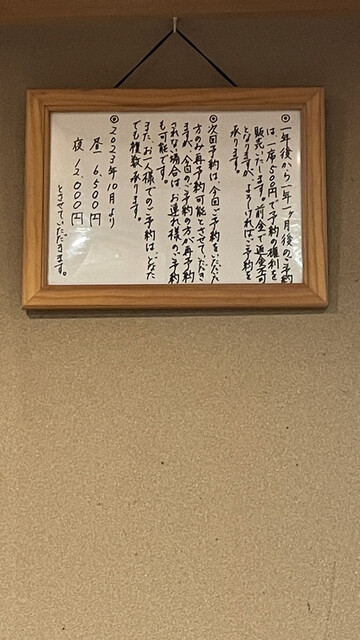 ◎一年後から一年一ヶ月後のご予約
は、一席500円で予約の権利を
販売いたします。前金で返金不可
となりますが、よろしければご予約を
承ります。
◎次回予約は、今回ご予約をいただいた
方のみ再予約可能とさせていただき
ますが、今回のご予約の方が再予約
されない場合は、お連れ様のご予約
も可能です。
またお一人様でのご予約は、どなた
でも複数承ります。
◎2023年10月より
昼 6,500円
夜 12,000円
とさせていただきます。